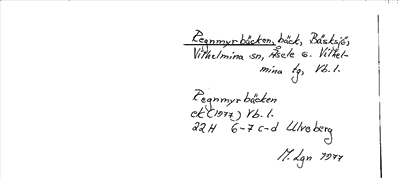 Pegnmyrbäcken, bäck, Båsksjö,
Vilhelmina sn, Åsele s. Vilhel-
mina tg, Vb. l.
Pegnmyrbäcken
ek (1977) Vb. l.
22H 6-7 c-d Ulvoberg
M. Lgn 1977